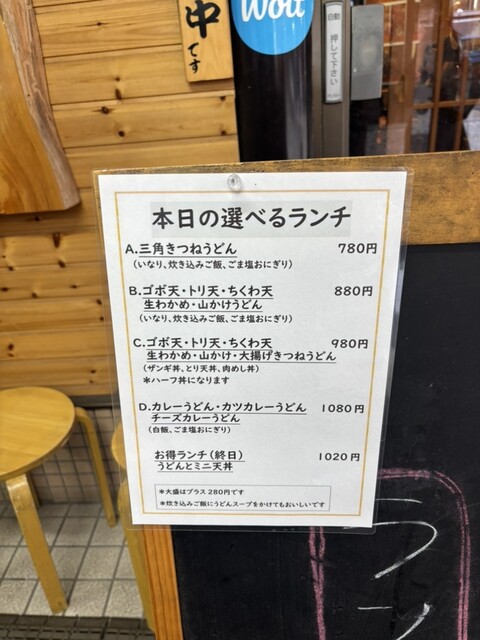 中
です
Wolt
自動
押して下さい
本日の選べるランチ
A.三角きつねうどん 780円
(いなり、炊き込みご飯、ごま塩おにぎり)
B.ゴボ天・トリ天・ちくわ天 880円
生わかめ・山かけうどん
(いなり、炊き込みご飯、ごま塩おにぎり)
C.ゴボ天・トリ天・ちくわ天 980円
生わかめ・山かけ・大揚げきつねうどん
(ザンギ丼、とり天丼、肉めし丼)
*ハーフ丼になります
D.カレーうどん・カツカレーうどん 1080円
チーズカレーうどん
(白飯、ごま塩おにぎり)
お得ランチ(終日) 1020円
うどんとミニ天丼
*大盛はプラス280円です
*炊き込みご飯にうどんスープをかけてもおいしいです